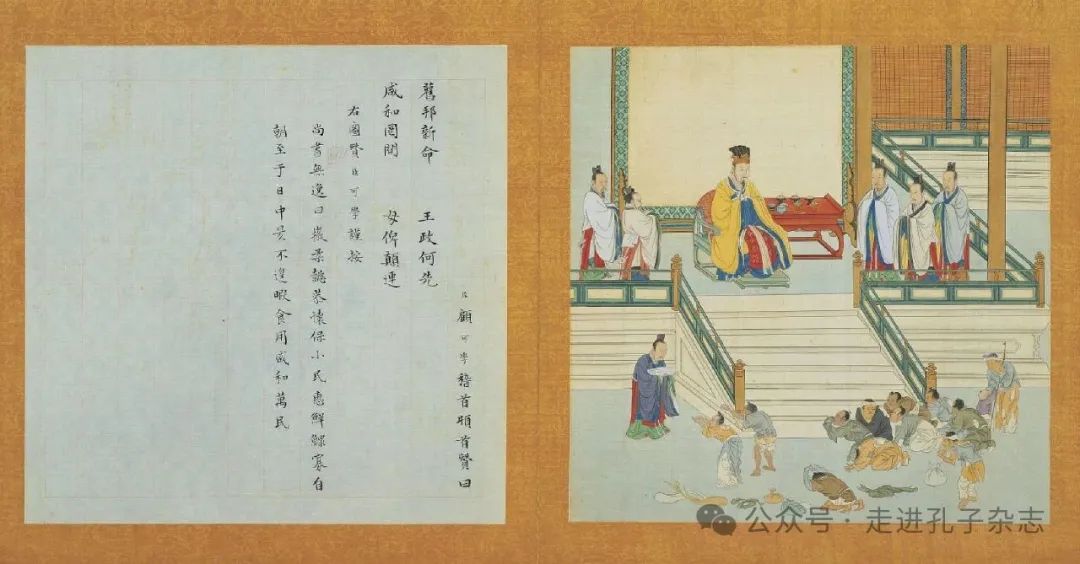 臣顧可學稽首頓首贊曰
舊邦新命 王政何先
咸和罔間 毋俾顛連
右圖贊臣可學謹按
尚書無逸曰徽柔懿恭懷保小民惠鮮鰥寡自
朝至于日中昃不遑暇食用咸和萬民
公众号 · 走进孔子杂志